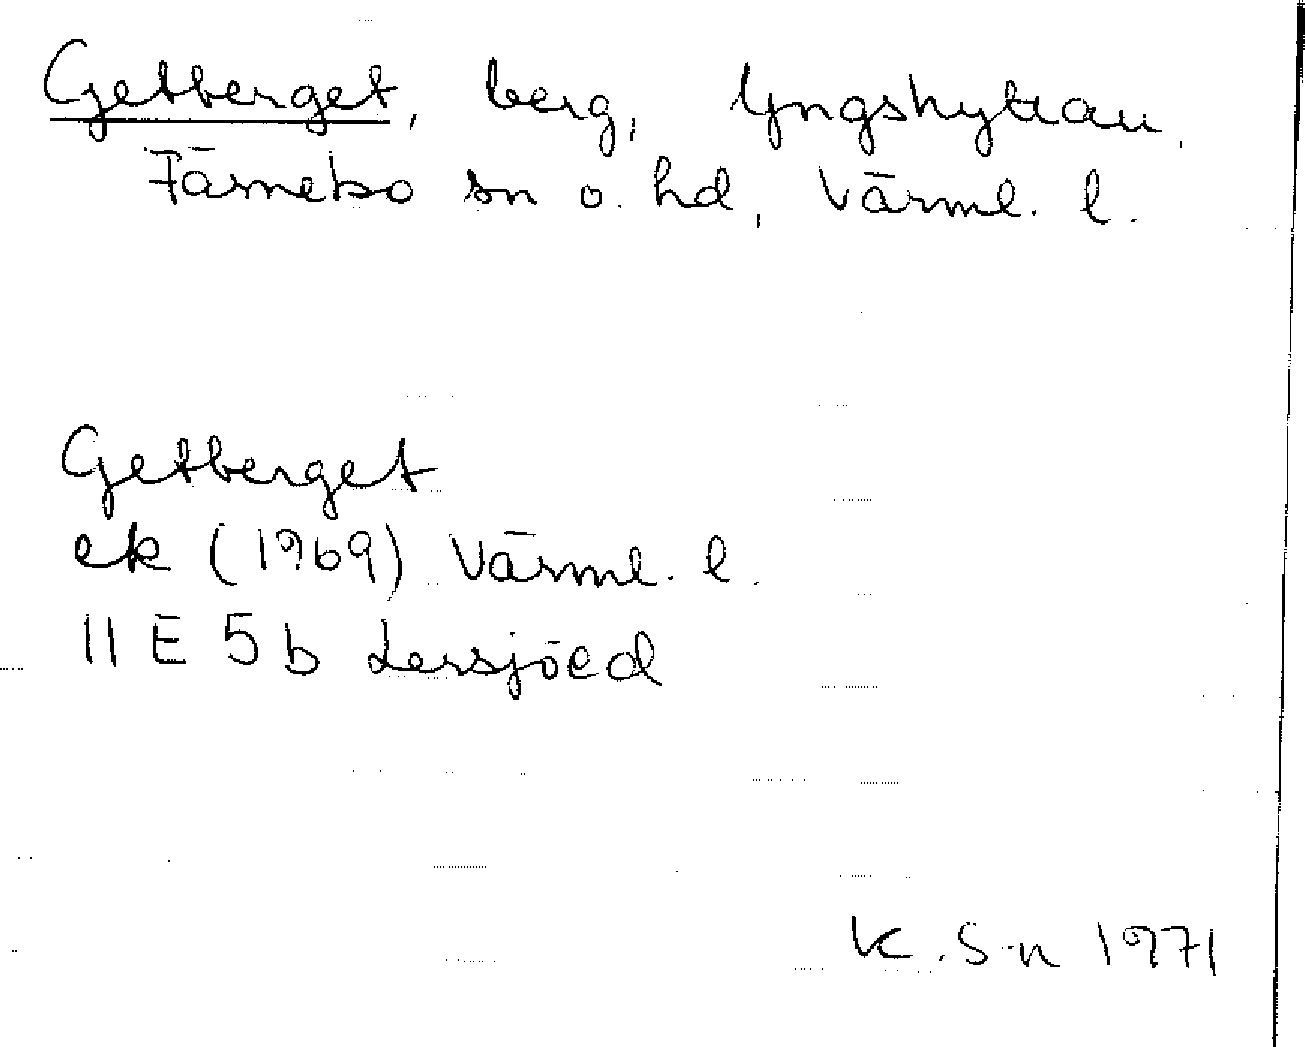 Getberget, berg, Yngshyttan,
Färnebo sn o. hd, Värml. l.
Getberget
ek (1969) Värml. l.
11 E 5 b Lersjöed
K. S-n 1971